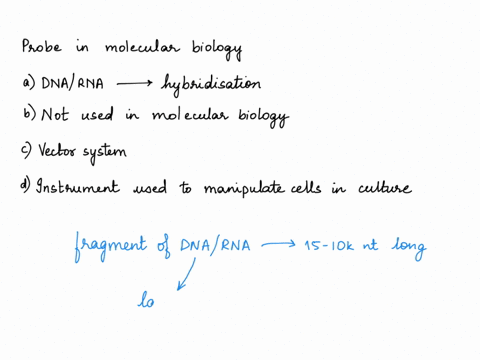 Probe in molecular biology
a) DNA/RNA → hybridisation
b) Not used in molecular biology
c) Vector system
d) Instrument used to manipulate cells in culture
fragment of DNA/RNA → 15-10k nt long
la